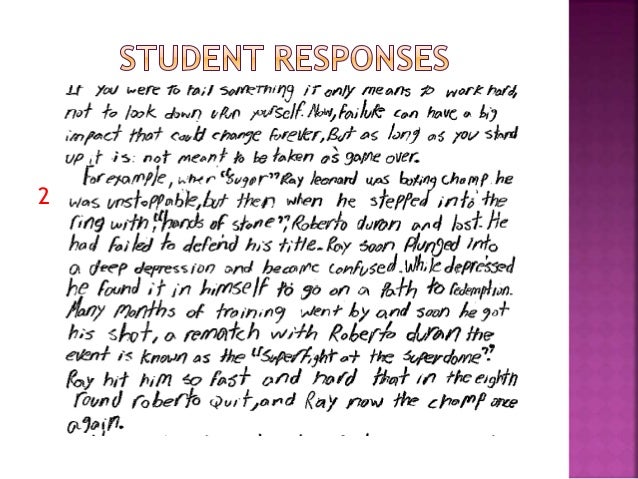 STUDENT RESPONSES
If you were to fail something it only means to work hard,
not to look down upon yourself. Now, failure can have a big
impact that could change forever, But as long as you stand
up it is not meant to be taken as game over.
For example, when "Sugar" Ray leonard was boxing champ he
2
was unstoppable, but then when he stepped into the
ring with, "hands of stone", Roberto duran and lost. He
had failed to defend his title. Ray soon plunged into
a deep depression and became confused. While depressed
he found it in himself to go on a path to redemption.
Many months of training went by and soon he got
his shot, a rematch with Roberto duran the
event is known as the "Superfight at the Superdome".
Ray hit him so fast and hard that in the eighth
round roberto Quit, and Ray now the champ once
again.